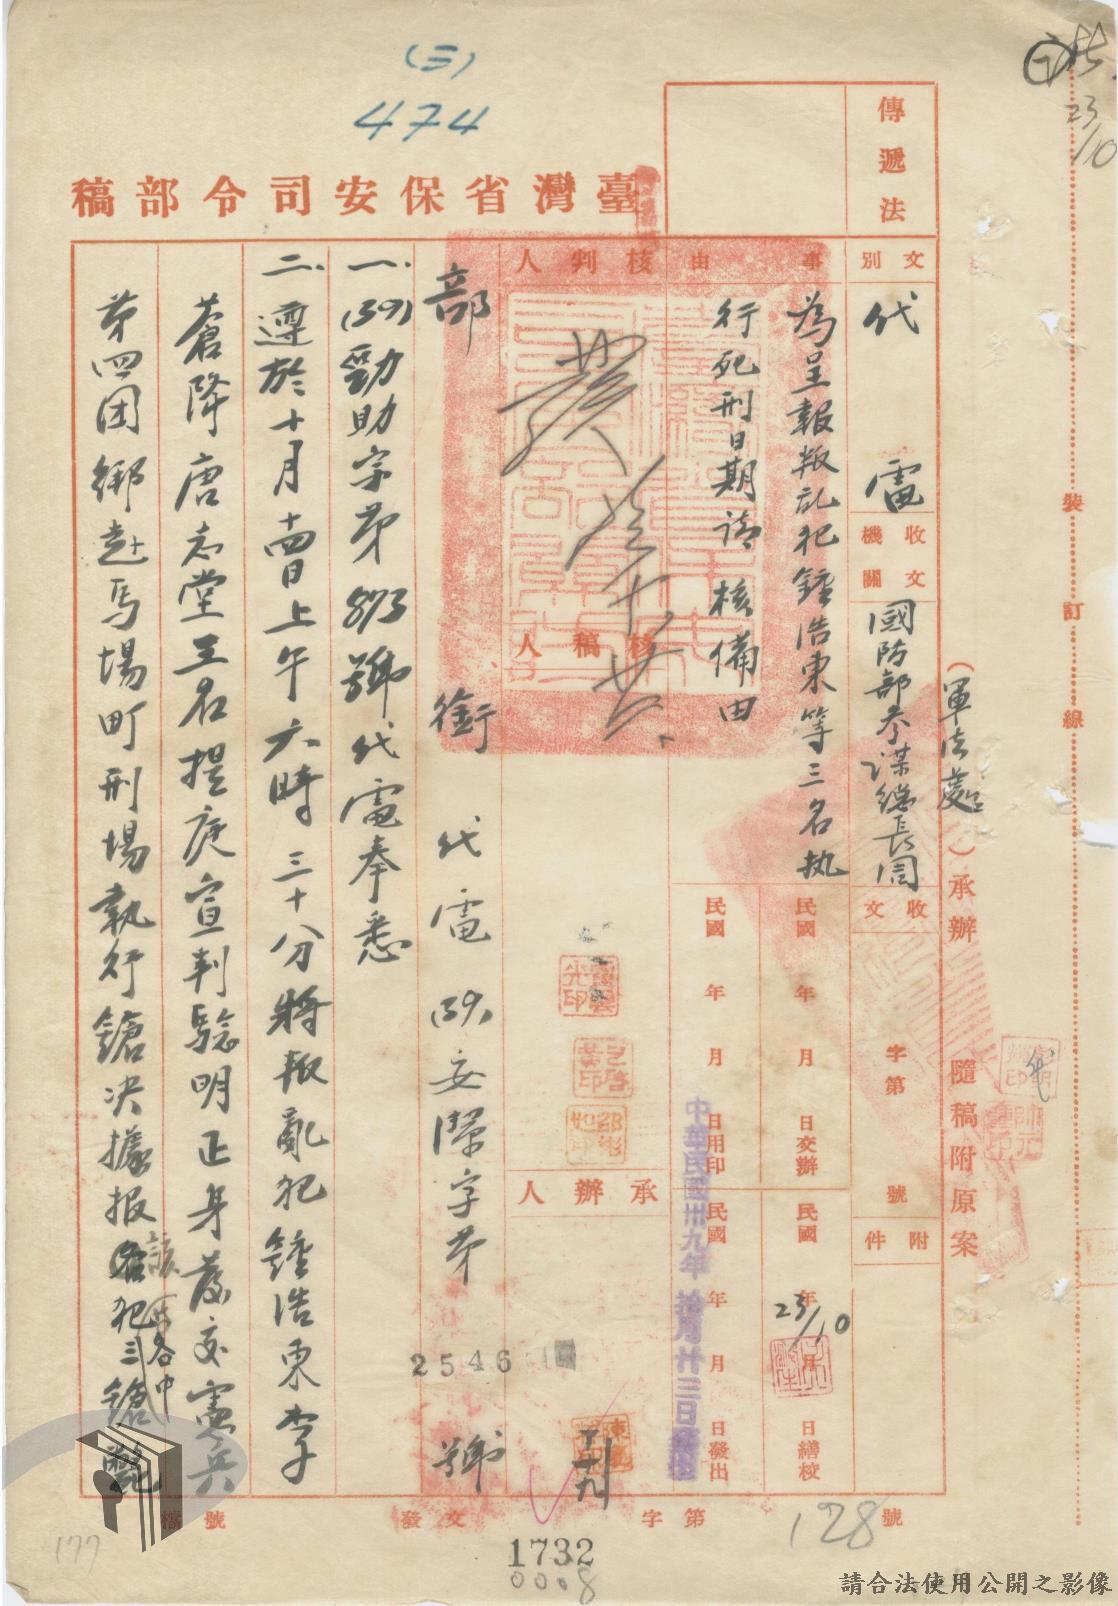 (三)
474
傳遞法
臺灣省保安司令部稿
(軍法處)承辦
隨稿附原案
23/10
裝訂線
文別
代電
收文機關
國防部參謀總長周
收文 字第 號
附件
事由
為呈報叛乱犯鍾浩東等三名执
行死刑日期請 核備由
核判人
核稿人
承辦人
民國 年 月 日交辦
民國 年 月 日繕校
23/10
民國 年 月 日用印
民國 年 月 日發出
中華民國卅九年拾月廿三日
部銜代電(39)安潔字第 號
2546
一、(39)勁助字第893號代電奉悉
二、遵於十月十四日上午六時三十分將叛亂犯鍾浩東李
蒼降唐志堂三名提庭宣判驗明正身發交憲兵
第四团綁赴馬場町刑場執行鎗决據报該犯各中三鎗斃
檔號
發文 字第 號
128
177
1732
0008
請合法使用公開之影像